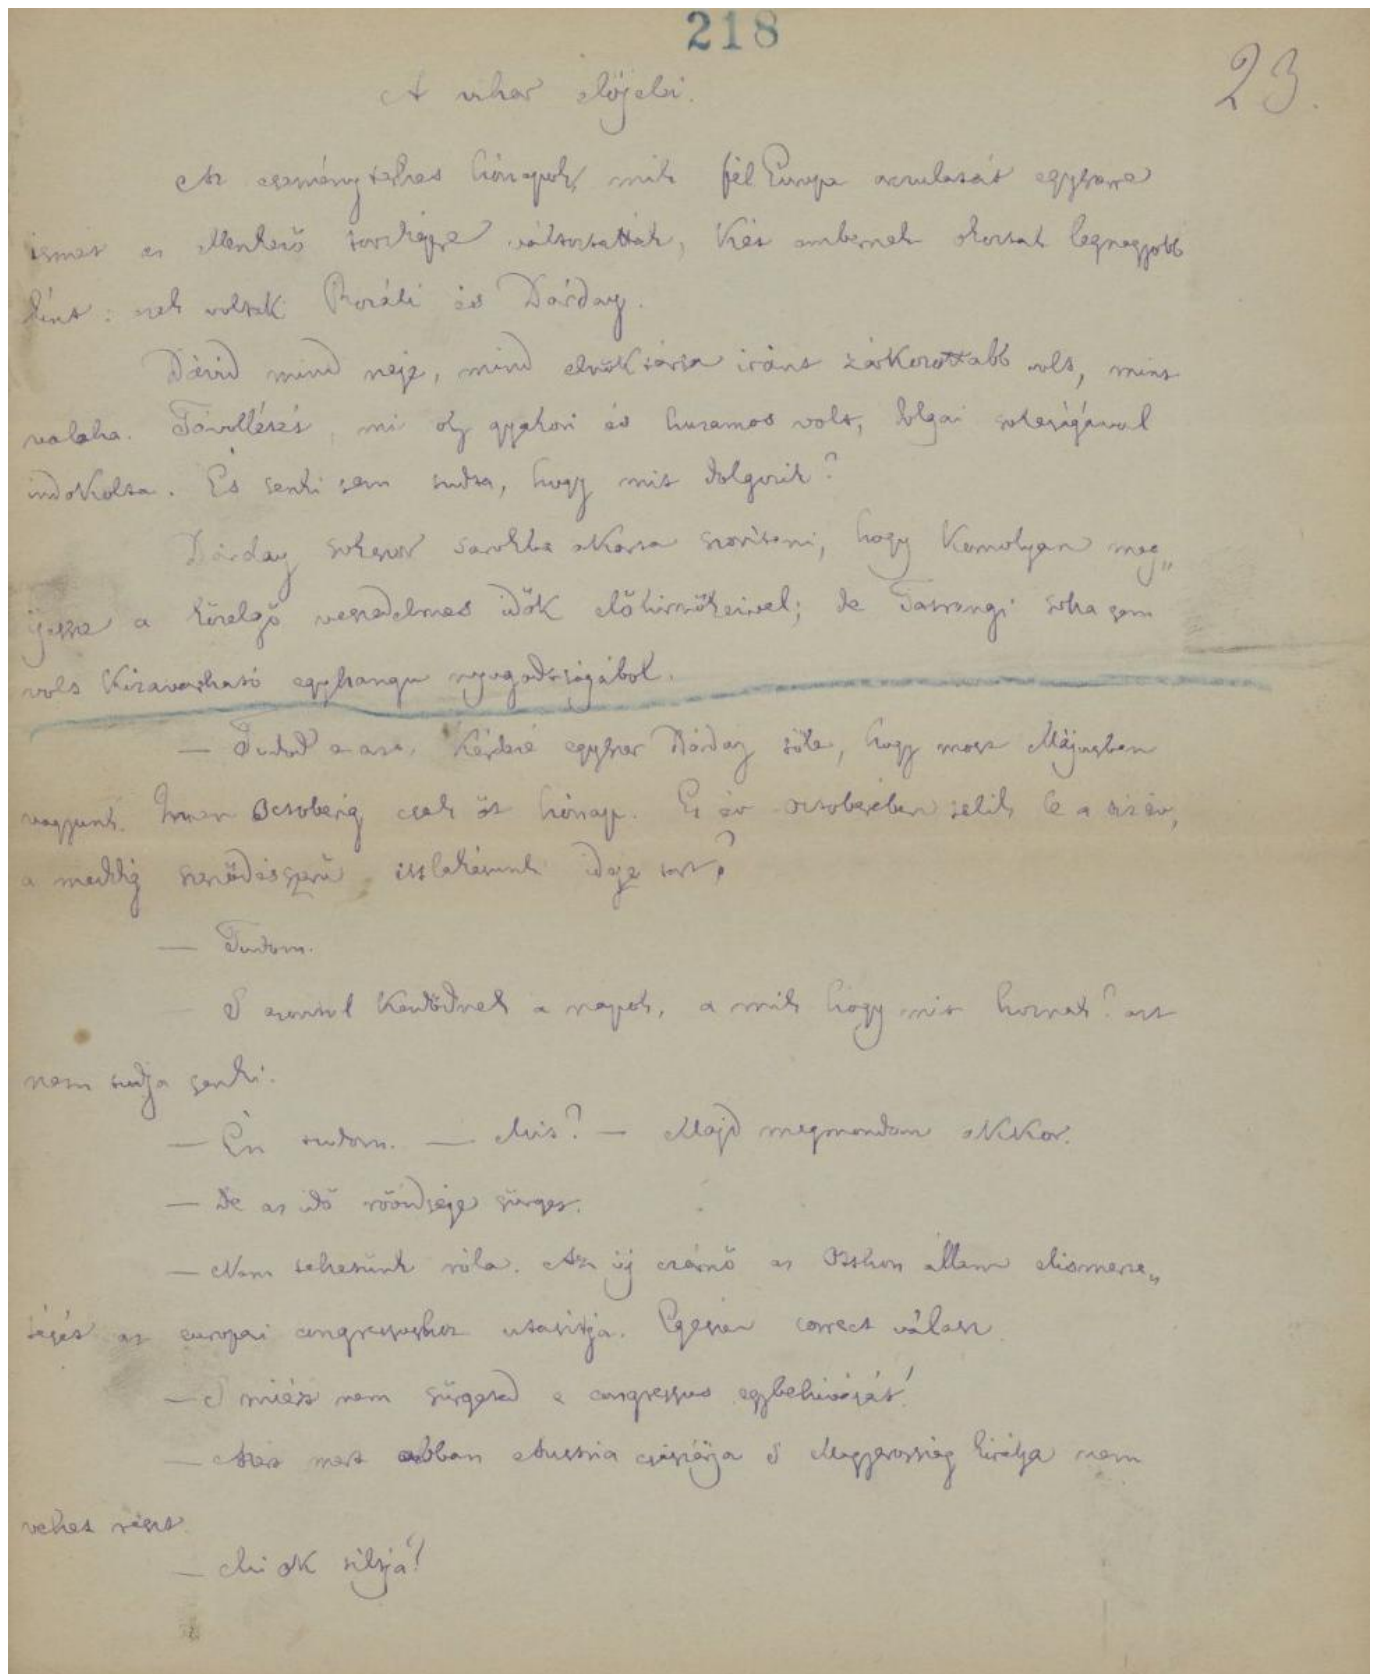 218
23.
A vihar előjelei.
Az eseményterhes hónapok, mik fél Európa arculatát egyszerre
ismét az ellenkező torzképre változtatták, két embernek okoztak legnagyobb
kínt: ezek voltak Rozáli és Dárday.
Dávid mind neje, mind elnöktársa iránt zárkozottabb volt, mint
valaha. Távollétét, mi oly gyakori és huzamos volt, dolgai sokaságával
indokolta. És senki sem tudta, hogy mit dolgozik?
Dárday sokszor sarokba akarta szorítani, hogy komolyan meg„
ijessze a közelgő veszedelmes idők előhirnökeivel; de Tatrangi soha sem
volt kizavarható egyhangu nyugodtságából.
— Tudod e azt, kérdezé egyszer Dárday tőle, hogy most Májusban
vagyunk. Innen Octoberig csak öt hónap. Ez év octoberében telik le a tiz év,
a meddig szerződésszerű ittlakásunk ideje tart?
— Tudom.
S azontul kezdődnek a napok, a mik hogy mit hoznak? azt
nem tudja senki.
— Én tudom. — Mit? — Majd megmondom akkor.
— De az idő rövidsége sürget.
— Nem tehetünk róla. Az új czárnő az Otthon állam elismerte„
tését az europai congressushoz utasitja. Egészen correct válasz.
— S miért nem sürgeted e congressus egybehivását!
— Azért mert abban Austria császárja s Magyarország királya nem
vehet részt.
— Mi ok tiltja!